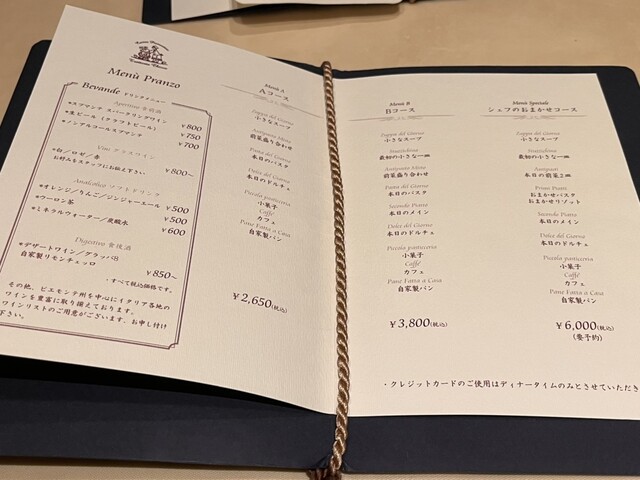 Menù Pranzo
Bevande ドリンクメニュー
Aperitivi 食前酒
*スプマンテ スパークリングワイン ￥800
*生ビール（クラフトビール） ￥750
*ノンアルコールスプマンテ ￥700
Vini グラスワイン
*白／ロゼ／赤 ￥800～
お好みをスタッフにお伝え下さい
Analcolici ソフトドリンク
*オレンジ／りんご／ジンジャーエール ￥500
*ウーロン茶 ￥500
*ミネラルウォーター／炭酸水 ￥600
Digestivi 食後酒
*デザートワイン／グラッパ
自家製リモンチェッロ ￥850～
・すべて税込価格です。
その他、ピエモンテ州を中心にイタリア各地の
ワインを豊富に取り揃えております。
ワインリストのご用意がございます。お申し付け
下さい。
Menù A
Aコース
Zuppa del Giorno
小さなスープ
Antipasto Misto
前菜盛り合わせ
Pasta del Giorno
本日のパスタ
Dolce del Giorno
本日のドルチェ
Piccola pasticceria
小菓子
Caffé
カフェ
Pane Fatta a Casa
自家製パン
￥2,650(税込)
Menù B
Bコース
Zuppa del Giorno
小さなスープ
Stuzzichino
最初の小さな一皿
Antipasto Misto
前菜盛り合わせ
Pasta del Giorno
本日のパスタ
Secondo Piatto
本日のメイン
Dolce del Giorno
本日のドルチェ
Piccola pasticceria
小菓子
Caffé
カフェ
Pane Fatta a Casa
自家製パン
￥3,800(税込)
Menù Speciale
シェフのおまかせコース
Zuppa del Giorno
小さなスープ
Stuzzichino
最初の小さな一皿
Antipasti
本日の前菜2皿
Primi Piatti
おまかせパスタ
おまかせリゾット
Secondo Piatto
本日のメイン
Dolce del Giorno
本日のドルチェ
Piccola pasticceria
小菓子
Caffé
カフェ
Pane Fatta a Casa
自家製パン
￥6,000(税込)
(要予約)
・クレジットカードのご使用はディナータイムのみとさせていただき